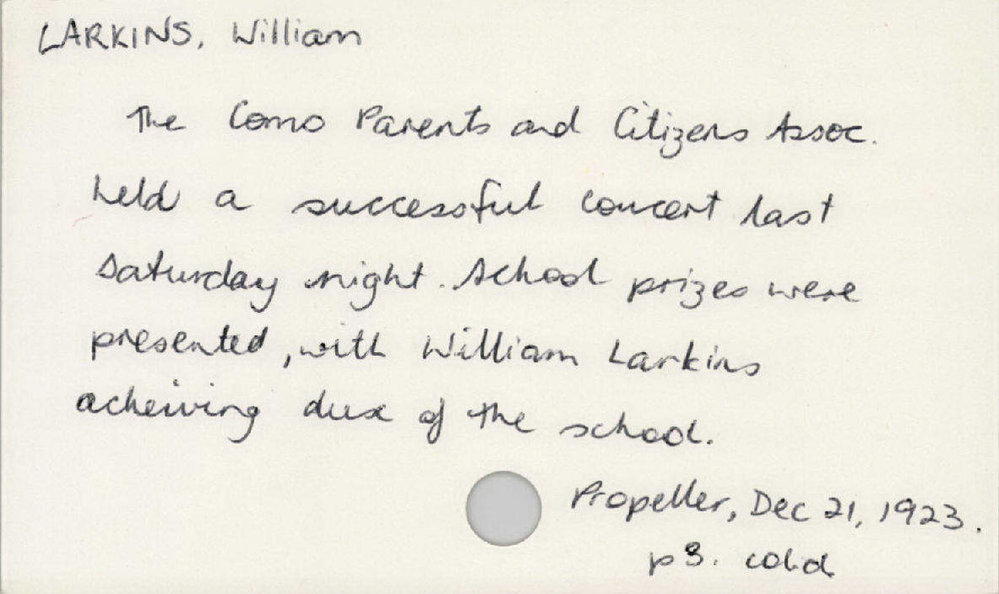 LARKINS, William
The Como Parents and Citizens Assoc.
held a successful concert last
Saturday night. School prizes were
presented, with William Larkins
acheiving dux of the school.
Propeller, Dec 21, 1923.
p 3. col.d